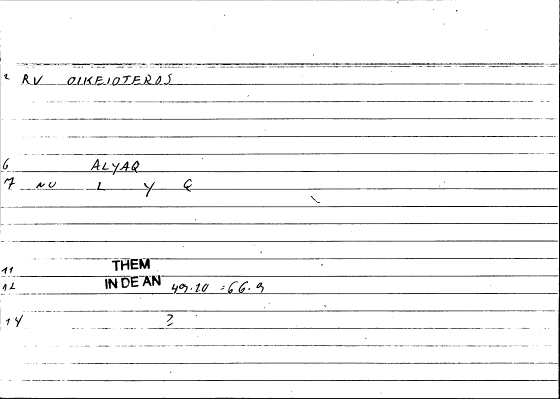 2 RV OIKEIOTEROS
6 ALYAQ
7 NU L Y Q
11 THEM
12 IN DE AN 49.10 =66.9
14 ?